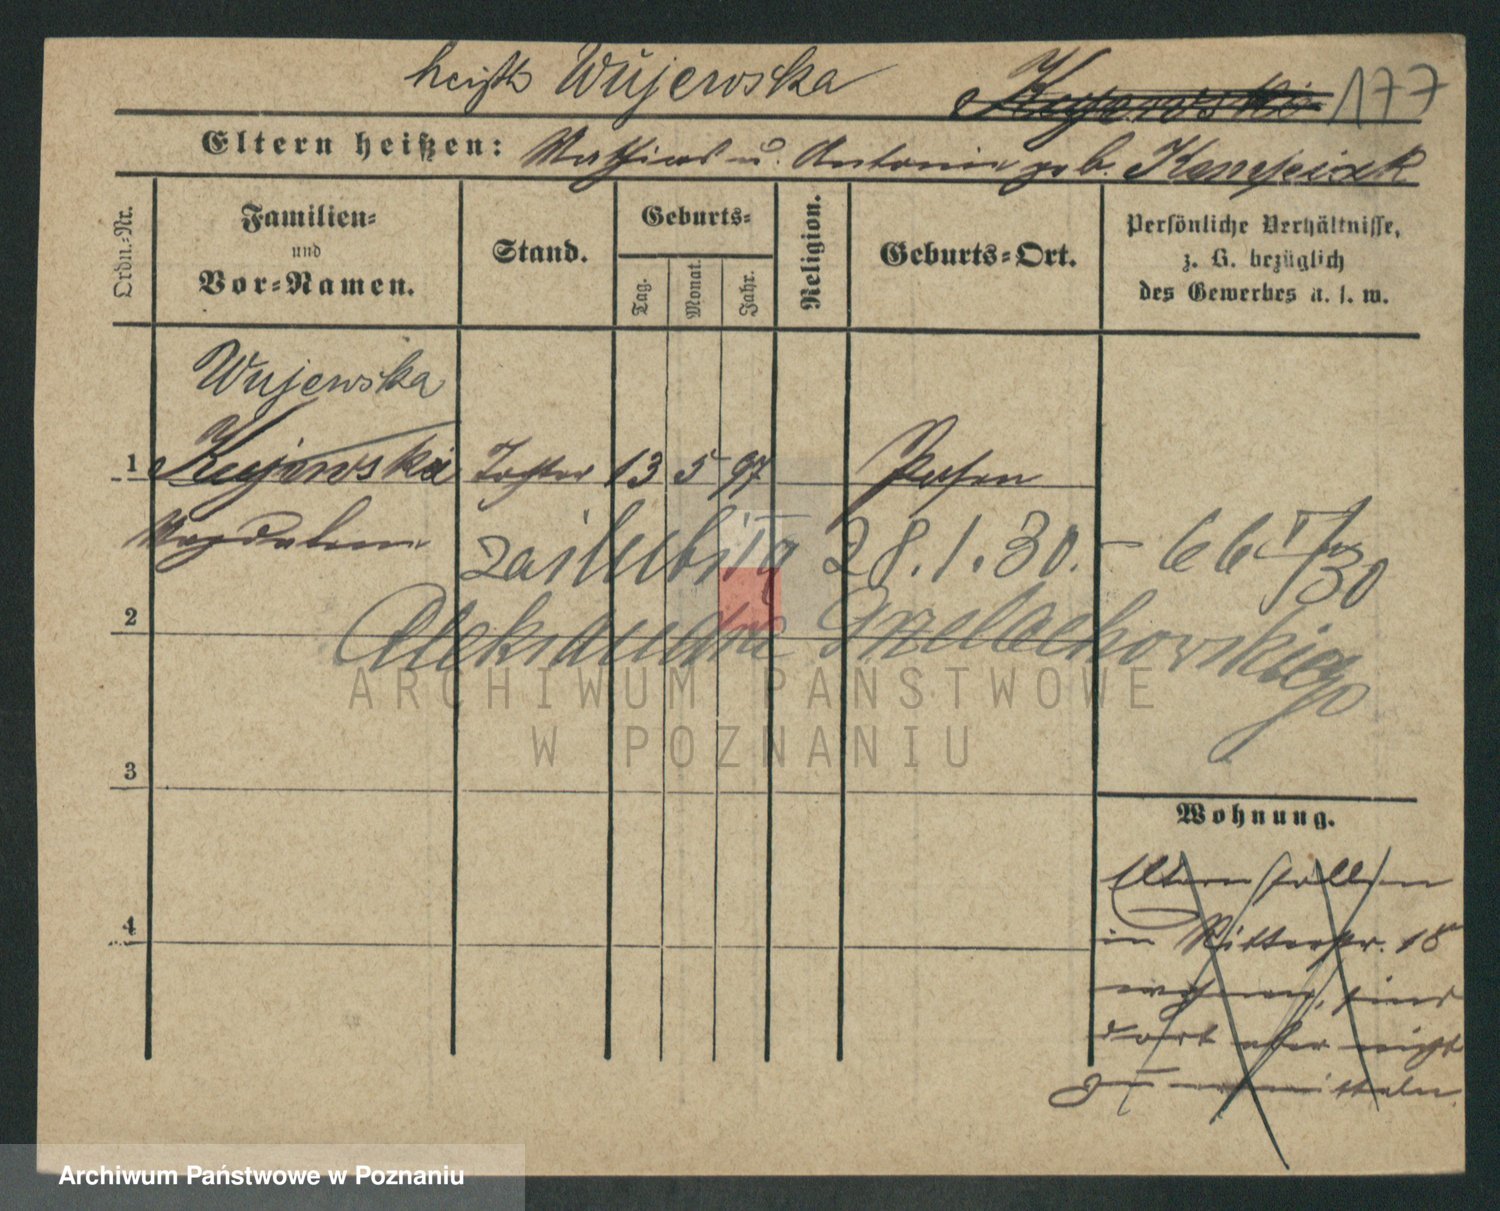 heißt Wujewska Kujewska 177
Eltern heißen: Mathias u. Antonie geb.
Ordn.-Nr.
Familien-
und
Vor-Namen.
Stand.
Geburts-
Tag.
Monat.
Jahr.
Religion.
Geburts-Ort.
Persönliche Verhältnisse,
z. B. bezüglich
des Gewerbes u. s. w.
Wujewska
1 Kujewska Tochter 13 5 97 Posen
Magdalena
zaślubiła 28.1.30. - 66 I/30
2 Aleksandra Grzelachowskiego
ARCHIWUM PAŃSTWOWE
W POZNANIU
3
Wohnung.
Eltern sollen
4 in Ritterstr. 18
wohnen, sind
dort aber nicht
zu ermitteln.
Archiwum Państwowe w Poznaniu